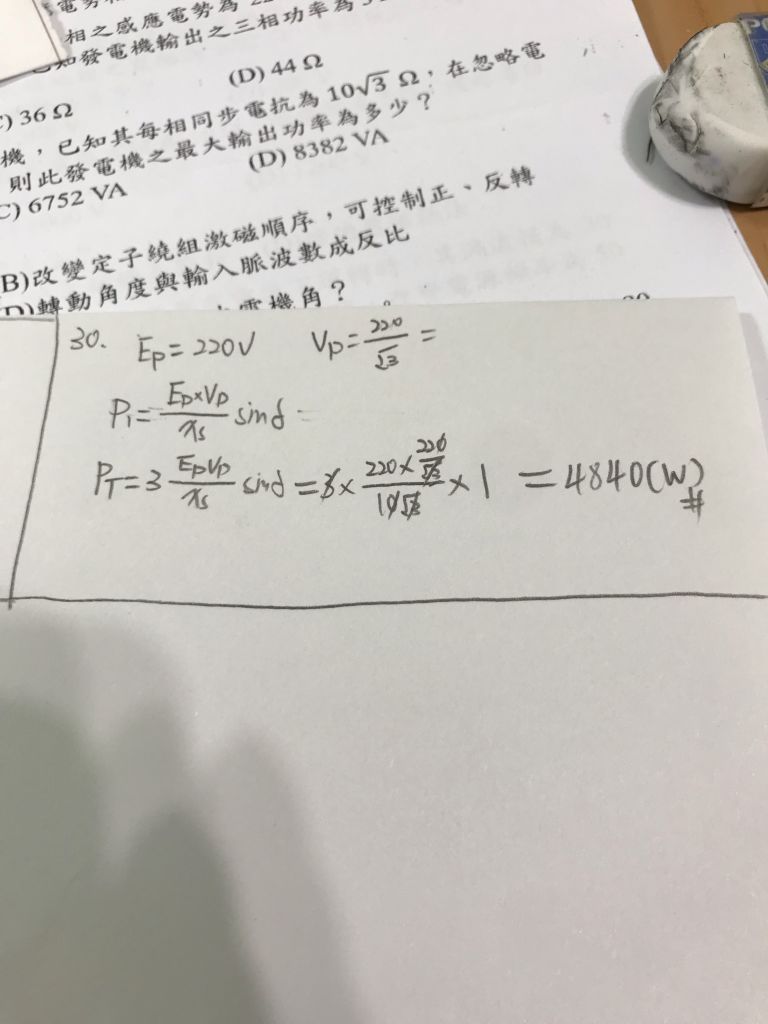 相之感應電勢為 22
知發電機輸出之三相功率為
) 36 Ω (D) 44 Ω
機，已知其每相同步電抗為 10√3 Ω，在忽略電
則此發電機之最大輸出功率為多少？
C) 6752 VA (D) 8382 VA
B)改變定子繞組激磁順序，可控制正、反轉
D)轉動角度與輸入脈波數成反比
電機角？
30. Ep = 220V Vp = 220/√3 =
P1 = Ep×Vp/Xs sinδ =
PT = 3 EpVp/Xs sinδ = 3 × 220 × 220/√3 / 10√3 × 1 = 4840(W) #